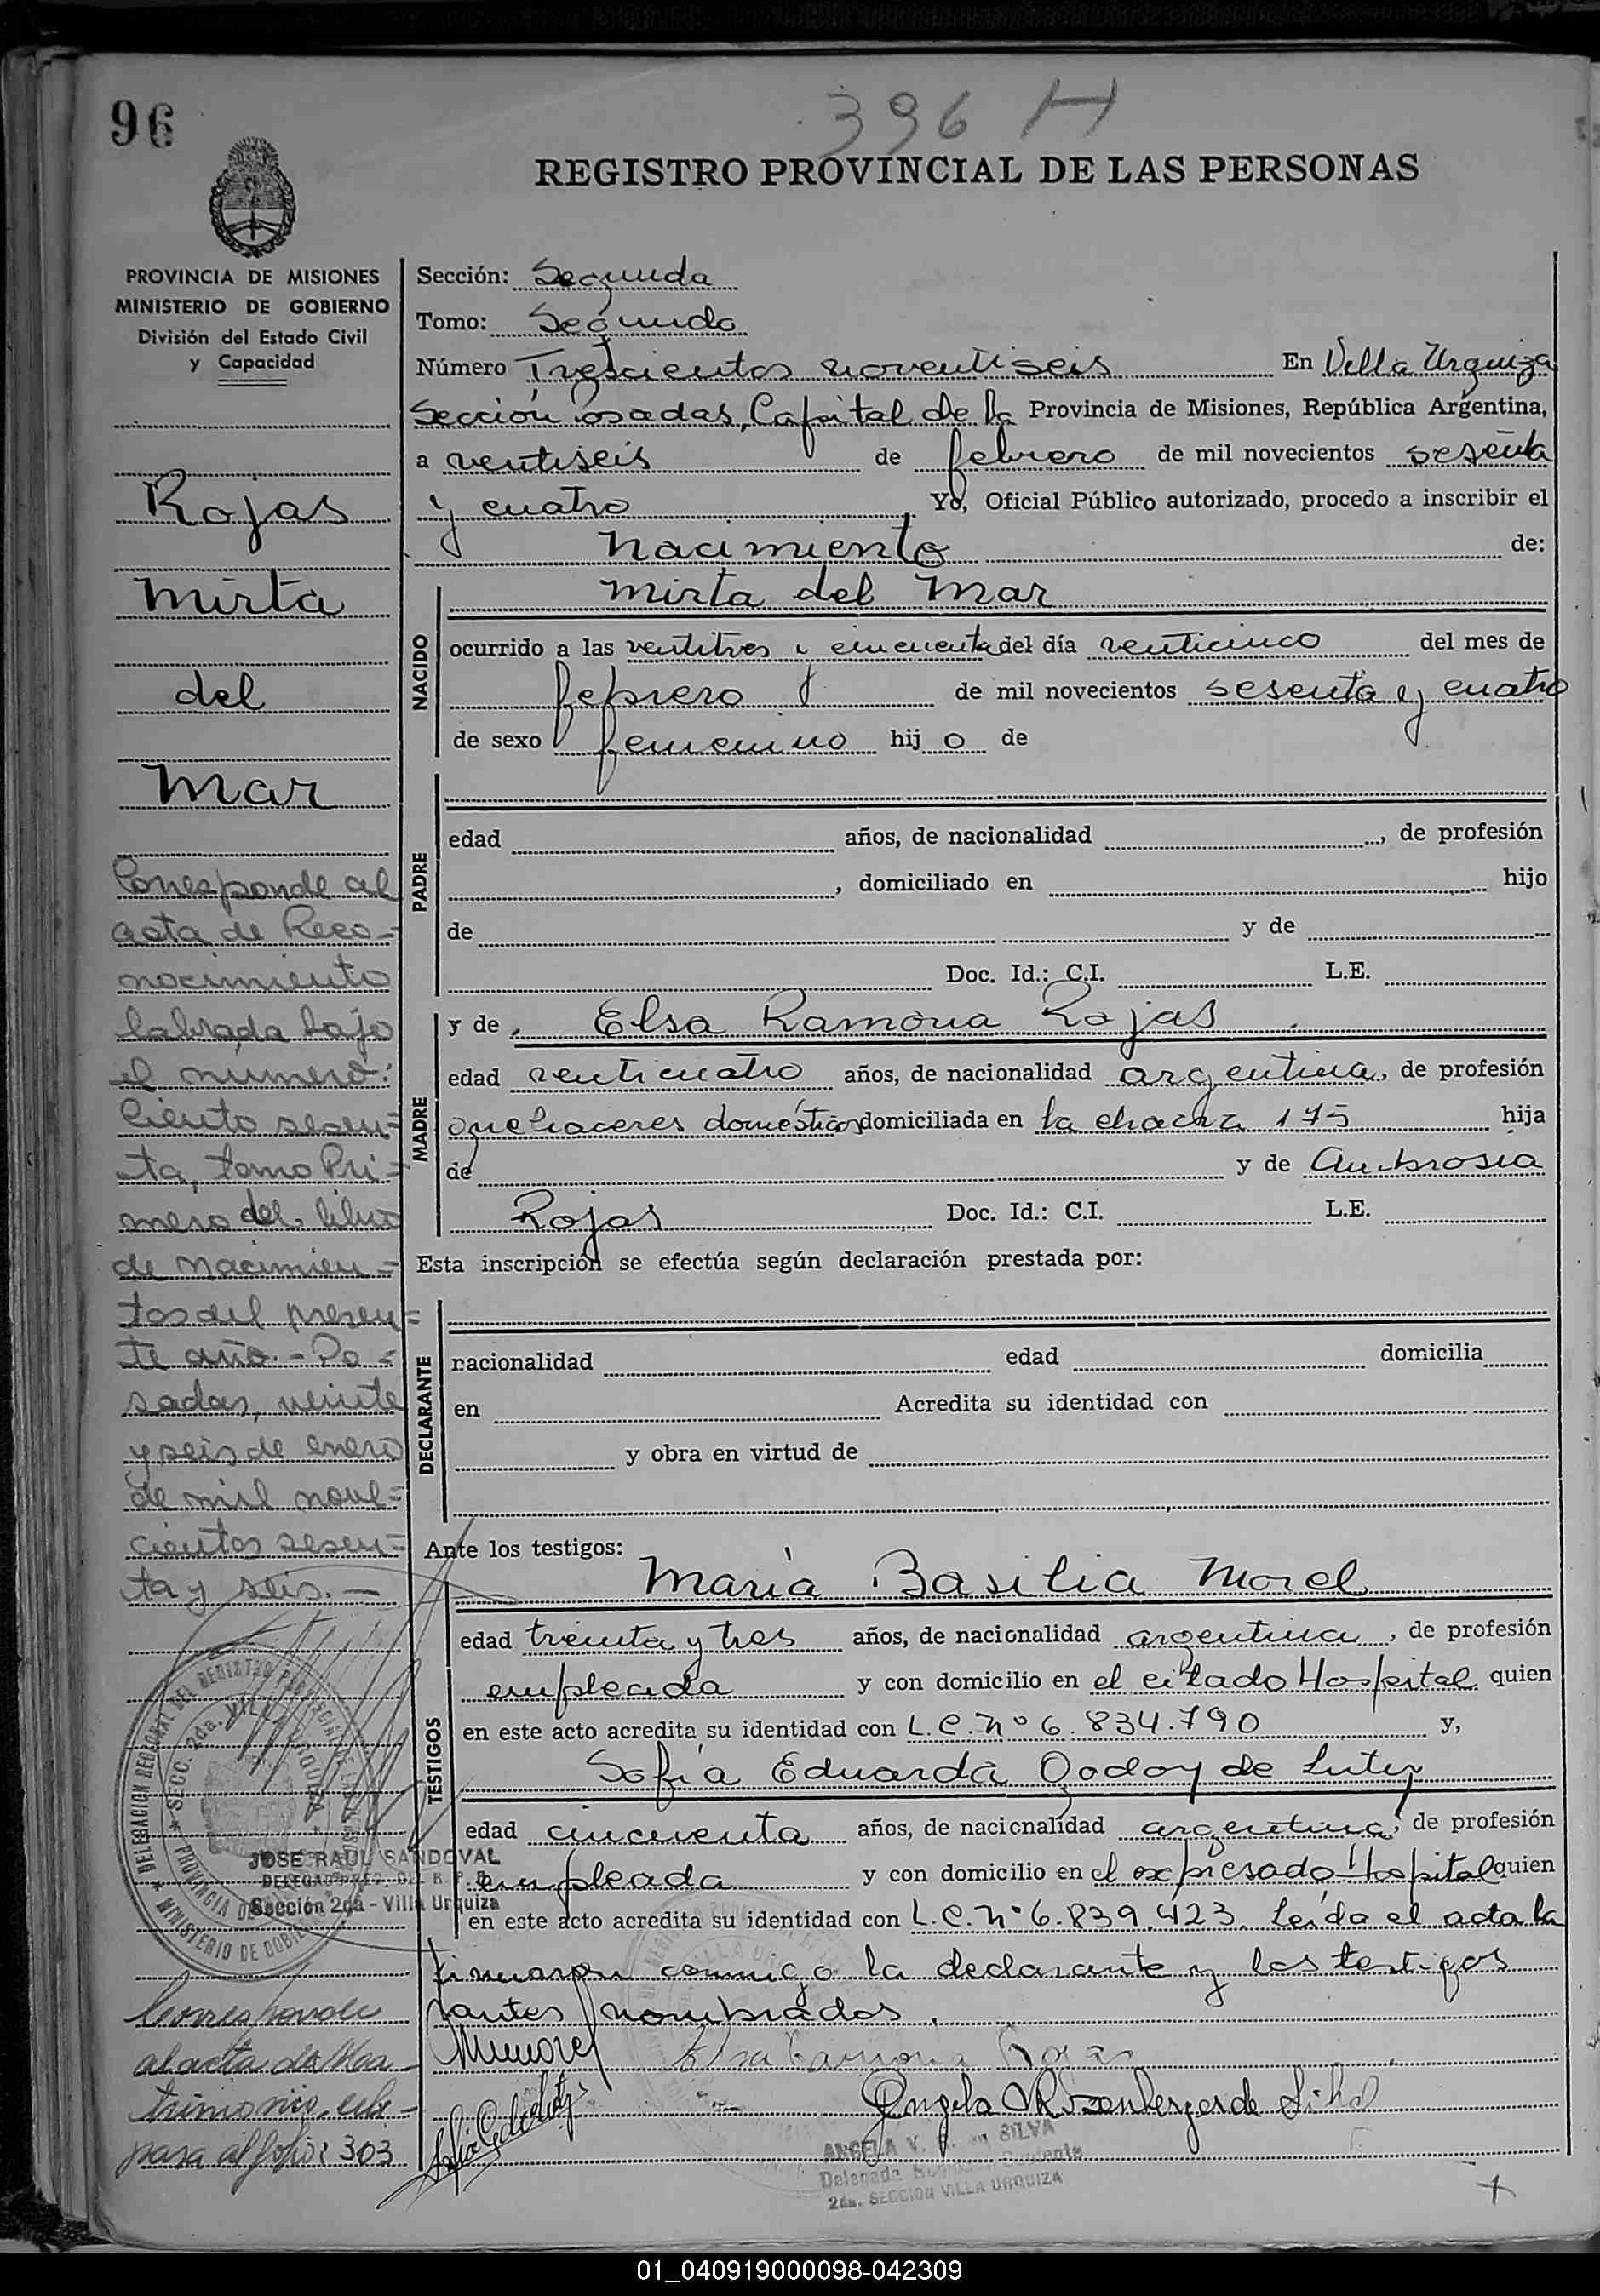 96
396 H
REGISTRO PROVINCIAL DE LAS PERSONAS
PROVINCIA DE MISIONES
MINISTERIO DE GOBIERNO
División del Estado Civil
y Capacidad
Rojas
Mirta
del
Mar
Corresponde al
acta de Reco-
nocimiento
labrada bajo
el numero:
Ciento sesen=
ta, tomo Pri=
mero del libro
de nacimien=
tos del presen=
te año.- Po=
sadas, veinte
y seis de enero
de mil nove=
cientos sesen=
ta y seis.-
DELEGACION REGIONAL DEL REGISTRO PROVINCIAL DE LAS PERSONAS
SECC. 2da. VILLA URQUIZA
PROVINCIA DE
MINISTERIO DE GOBIERNO
JOSE RAUL SANDOVAL
Sección 2da - Villa Urquiza
Corresponde
al acta de Ma-
trimonio, 
pasa al folio: 303
Sección: Segunda
Tomo: Segundo
Número Trescientos noventiseis En Villa Urquiza
Sección Posadas, Capital de la Provincia de Misiones, República Argentina,
a ventiseis de febrero de mil novecientos sesenta
y cuatro Yo, Oficial Público autorizado, procedo a inscribir el
nacimiento de:
NACIDO
Mirta del Mar
ocurrido a las ventitres y cincuenta del día venticinco del mes de
febrero de mil novecientos sesenta y cuatro
de sexo femenino hij o de
PADRE
edad años, de nacionalidad , de profesión
, domiciliado en hijo
de y de
Doc. Id.: C.I. L.E.
MADRE
y de Elsa Ramona Rojas
edad venticuatro años, de nacionalidad argentina, de profesión
quehaceres domésticos domiciliada en la chacra 175 hija
de y de Ambrosia
Rojas Doc. Id.: C.I. L.E.
Esta inscripción se efectúa según declaración prestada por:
DECLARANTE
racionalidad edad domicilia
en Acredita su identidad con
y obra en virtud de
Ante los testigos:
TESTIGOS
María Basilia Morel
edad treinta y tres años, de nacionalidad argentina, de profesión
empleada y con domicilio en el citado Hospital quien
en este acto acredita su identidad con L.C. Nº 6.834.790 y,
Sofía Eduarda Godoy de Lutz
edad cincuenta años, de nacionalidad argentina, de profesión
empleada y con domicilio en el expresado Hospital quien
en este acto acredita su identidad con L.C. Nº 6.839.423. Leída el acta la
firmaron conmigo la declarante y los testigos
antes nombrados.
Elsa Ramona Rojas
ANGELA V. SILVA
Delegada
2da. SECCION VILLA URQUIZA
01_040919000098-042309